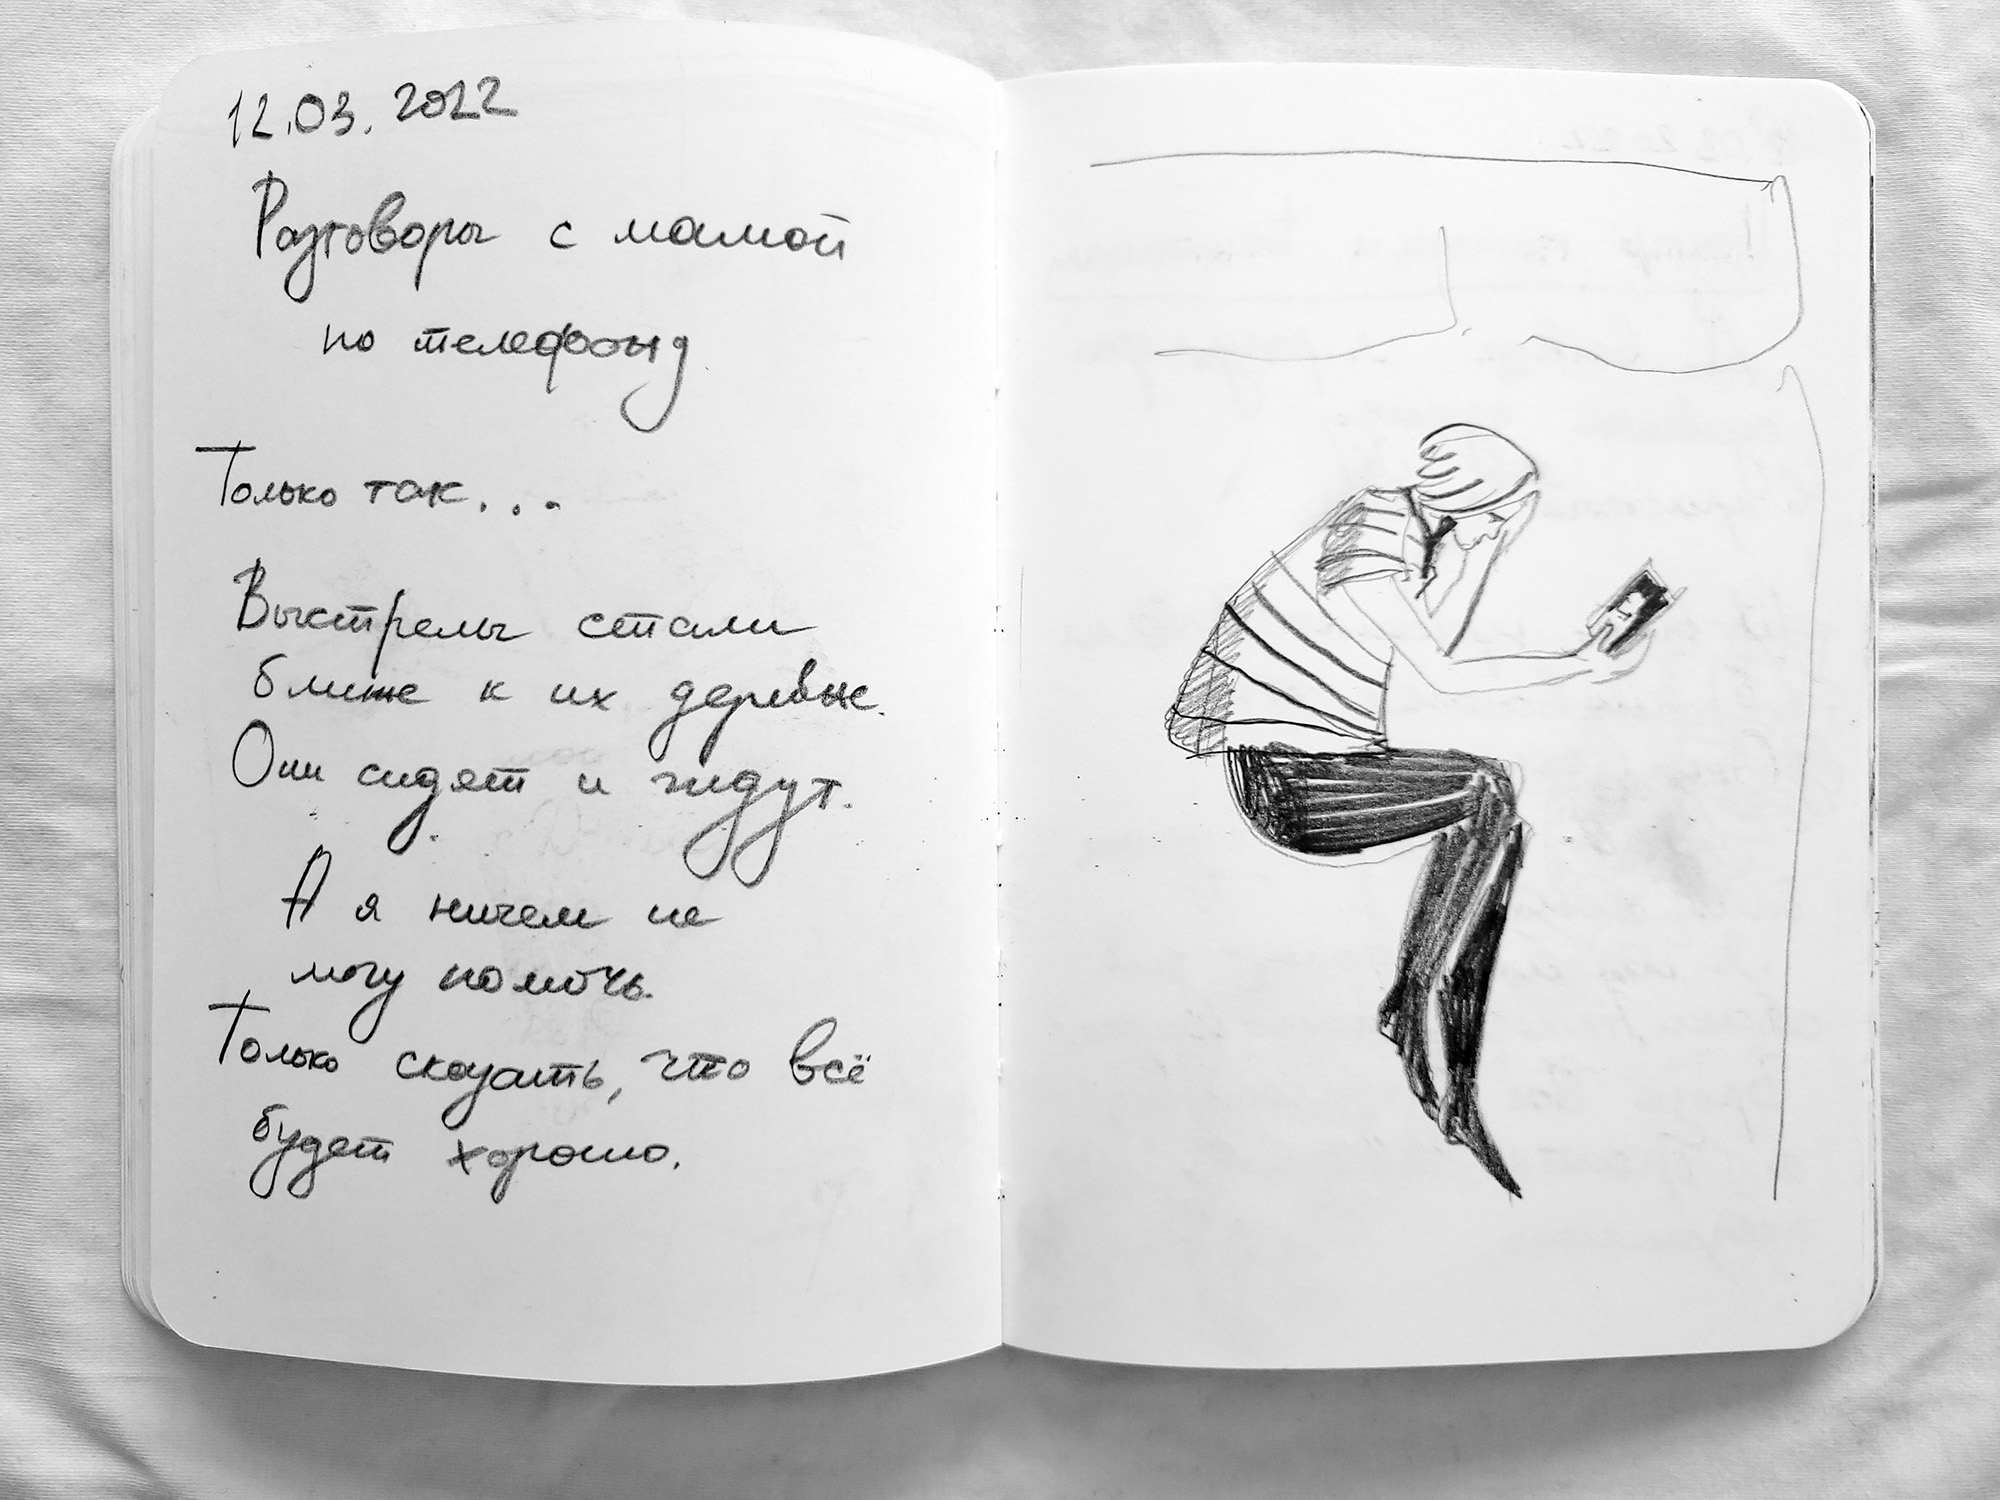 12.03.2022
Разговоры с мамой
по телефону
Только так...
Выстрелы стали
ближе к их деревне.
Они сидят и ждут.
А я ничем не
могу помочь.
Только сказать, что всё
будет хорошо.